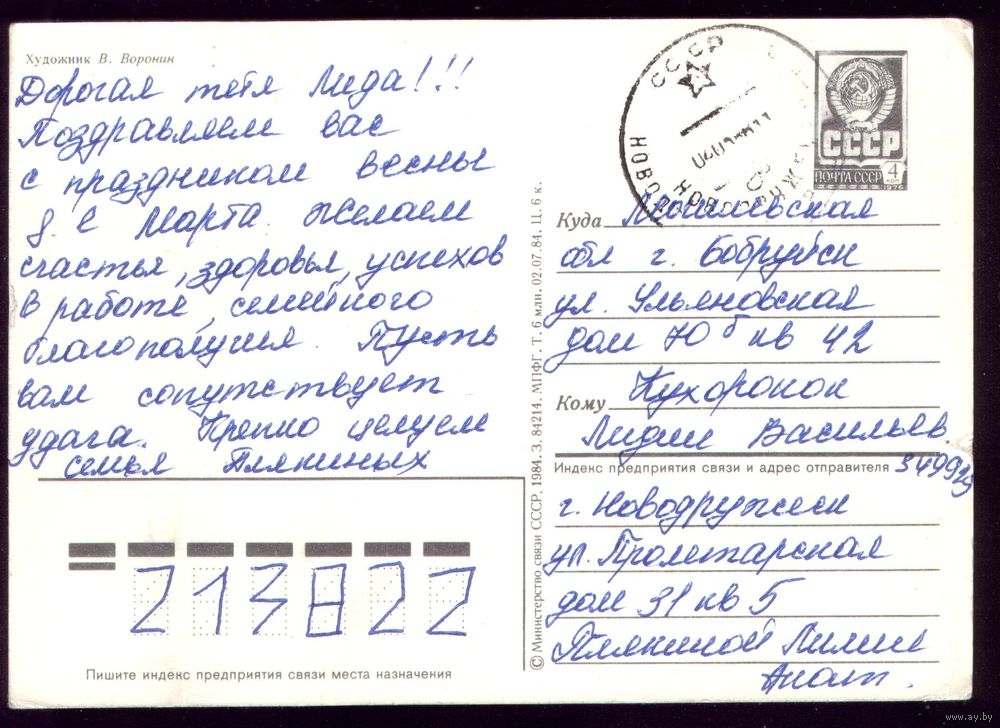 Художник В. Воронин
Дорогая тётя Лида!!!
Поздравляем вас
с праздником весны
8 е Марта. Желаем
счастья, здоровья, успехов
в работе, семейного
благополучия. Пусть
вам сопутствует
удача. Крепко целуем
семья Плякиных
Пишите индекс предприятия связи места назначения
213822
© Министерство связи СССР, 1984. З. 84214. МПФГ. Т. 6 млн. 02.07.84. Ц. 6 к.
СССР
НОВОДРУЖЕСК
СССР
ПОЧТА СССР 4 коп
1976
Куда Могилевская
обл г. Бобруйск
ул. Ульяновская
дом 70 б кв 42
Кому Кухоронок
Лидии Васильев.
Индекс предприятия связи и адрес отправителя 349919
г. Новодружеск
ул. Пролетарская
дом 31 кв 5
Плякиной Лилии
Анат.
www.ay.by